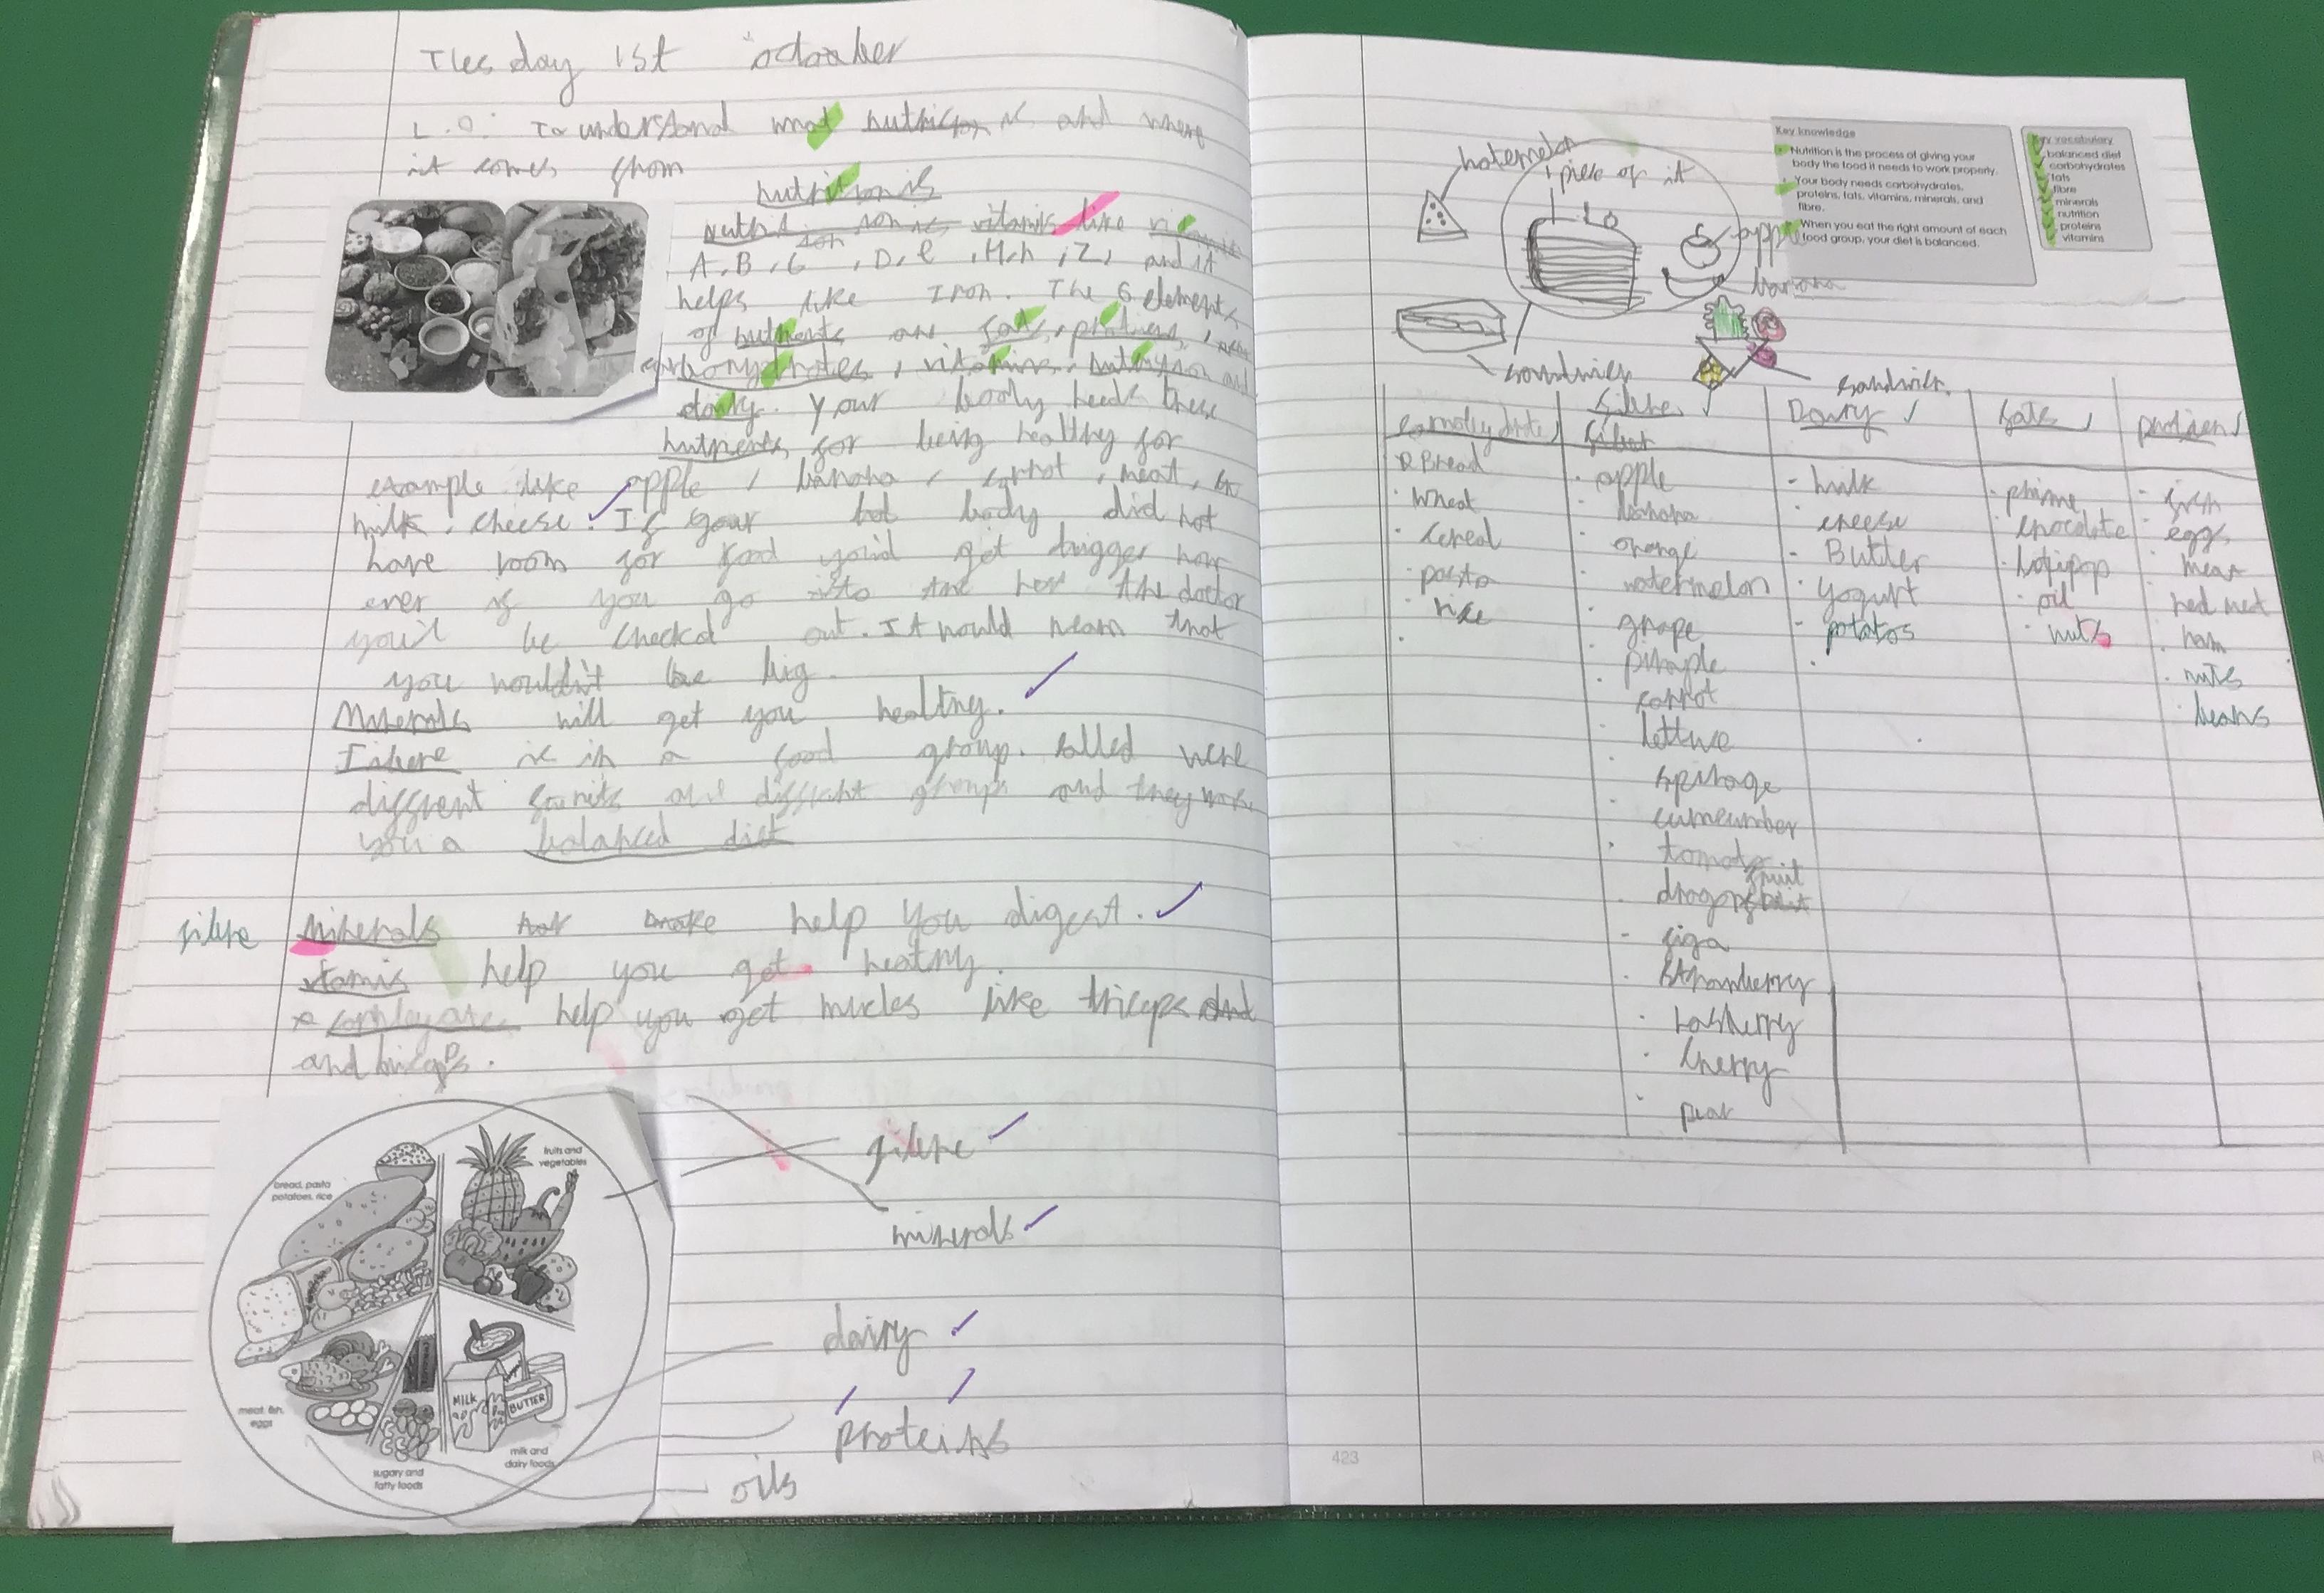 Tuesday 1st octoober
L.O: To understand what nutricion is and where
it comes from
nutrition is
vitamis like
A, B, C, D, e, H, h, Z, and it
helps like Iron. The 6 elements
of nutrients are fats, proteins,
carbohydrates, vitamins, and
dairy. Your body needs these
nutrients for being healthy for
example like apple, banana, carrot, meat,
milk, cheese. If your body did not
have room for food you'd get bigger how
ever if you go into the the doctor
you'll be checked out. It would mean that
you wouldn't be big.
Minerals will get you healthy.
is in a food group. called were
diffrent are groups and they
you a balanced diet
fibre
minerals help you digest.
vtamis help you get heathy.
help you get mucles like triceps and
and biceps.
bread, pasta
potatoes, rice
fruits and
vegetables
meat, fish,
eggs
sugary and
fatty foods
milk and
dairy foods
MILK
BUTTER
fibre
minerals
dairy
proteins
oils
piece of it
apple
banana
sandwich
sandwich
Key knowledge
Nutrition is the process of giving your
body the food it needs to work properly.
Your body needs carbohydrates,
proteins, fats, vitamins, minerals, and
fibre.
When you eat the right amount of each
food group, your diet is balanced.
Key vocabulary
balanced diet
carbohydrates
fats
fibre
minerals
nutrition
proteins
vitamins
Bread
wheat
cereal
pasta
rice
fibre
apple
banana
orange
watermelon
grape
pinaple
carrot
lettuce
cumcumber
tomato
dragon fruit
Strawberry
cherry
pear
Dairy
milk
cheese
Butter
yogurt
potatos
fats
prime
chocolate
lolipop
oil
nuts
protien
fish
eggs
meat
red meat
ham
nuts
beans
423